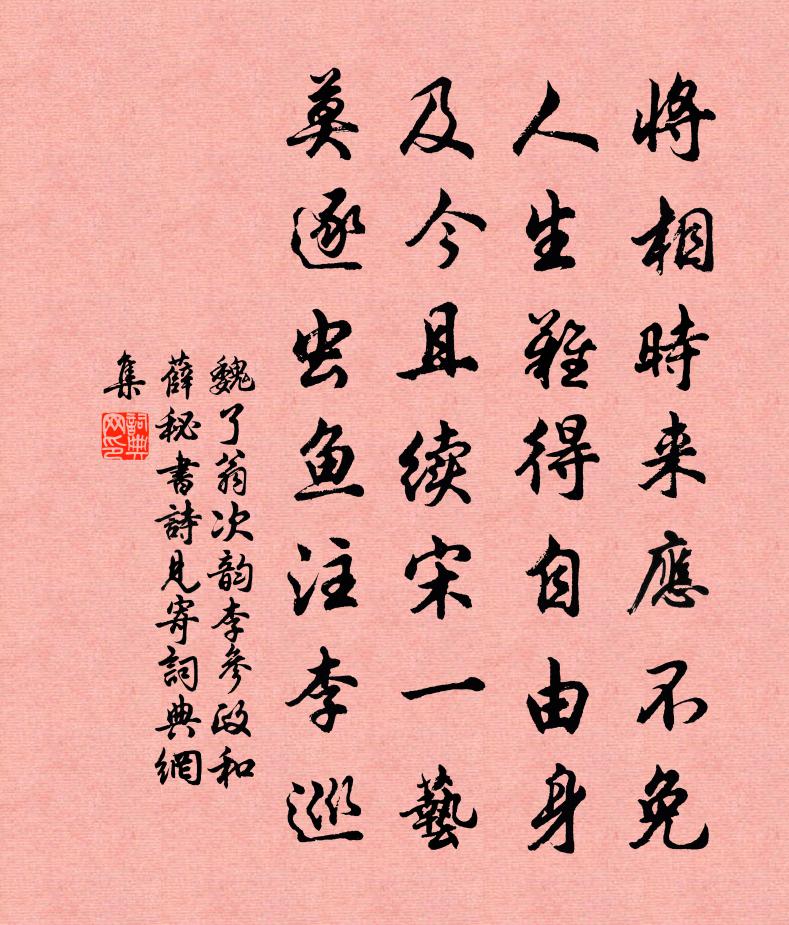 将相時来應不免
人生難得自由身
及今且续宋一藝
莫逐虫鱼注李巡
魏了翁次韵李參政和
薛秘書詩見寄詞典網
集
詞典
网印